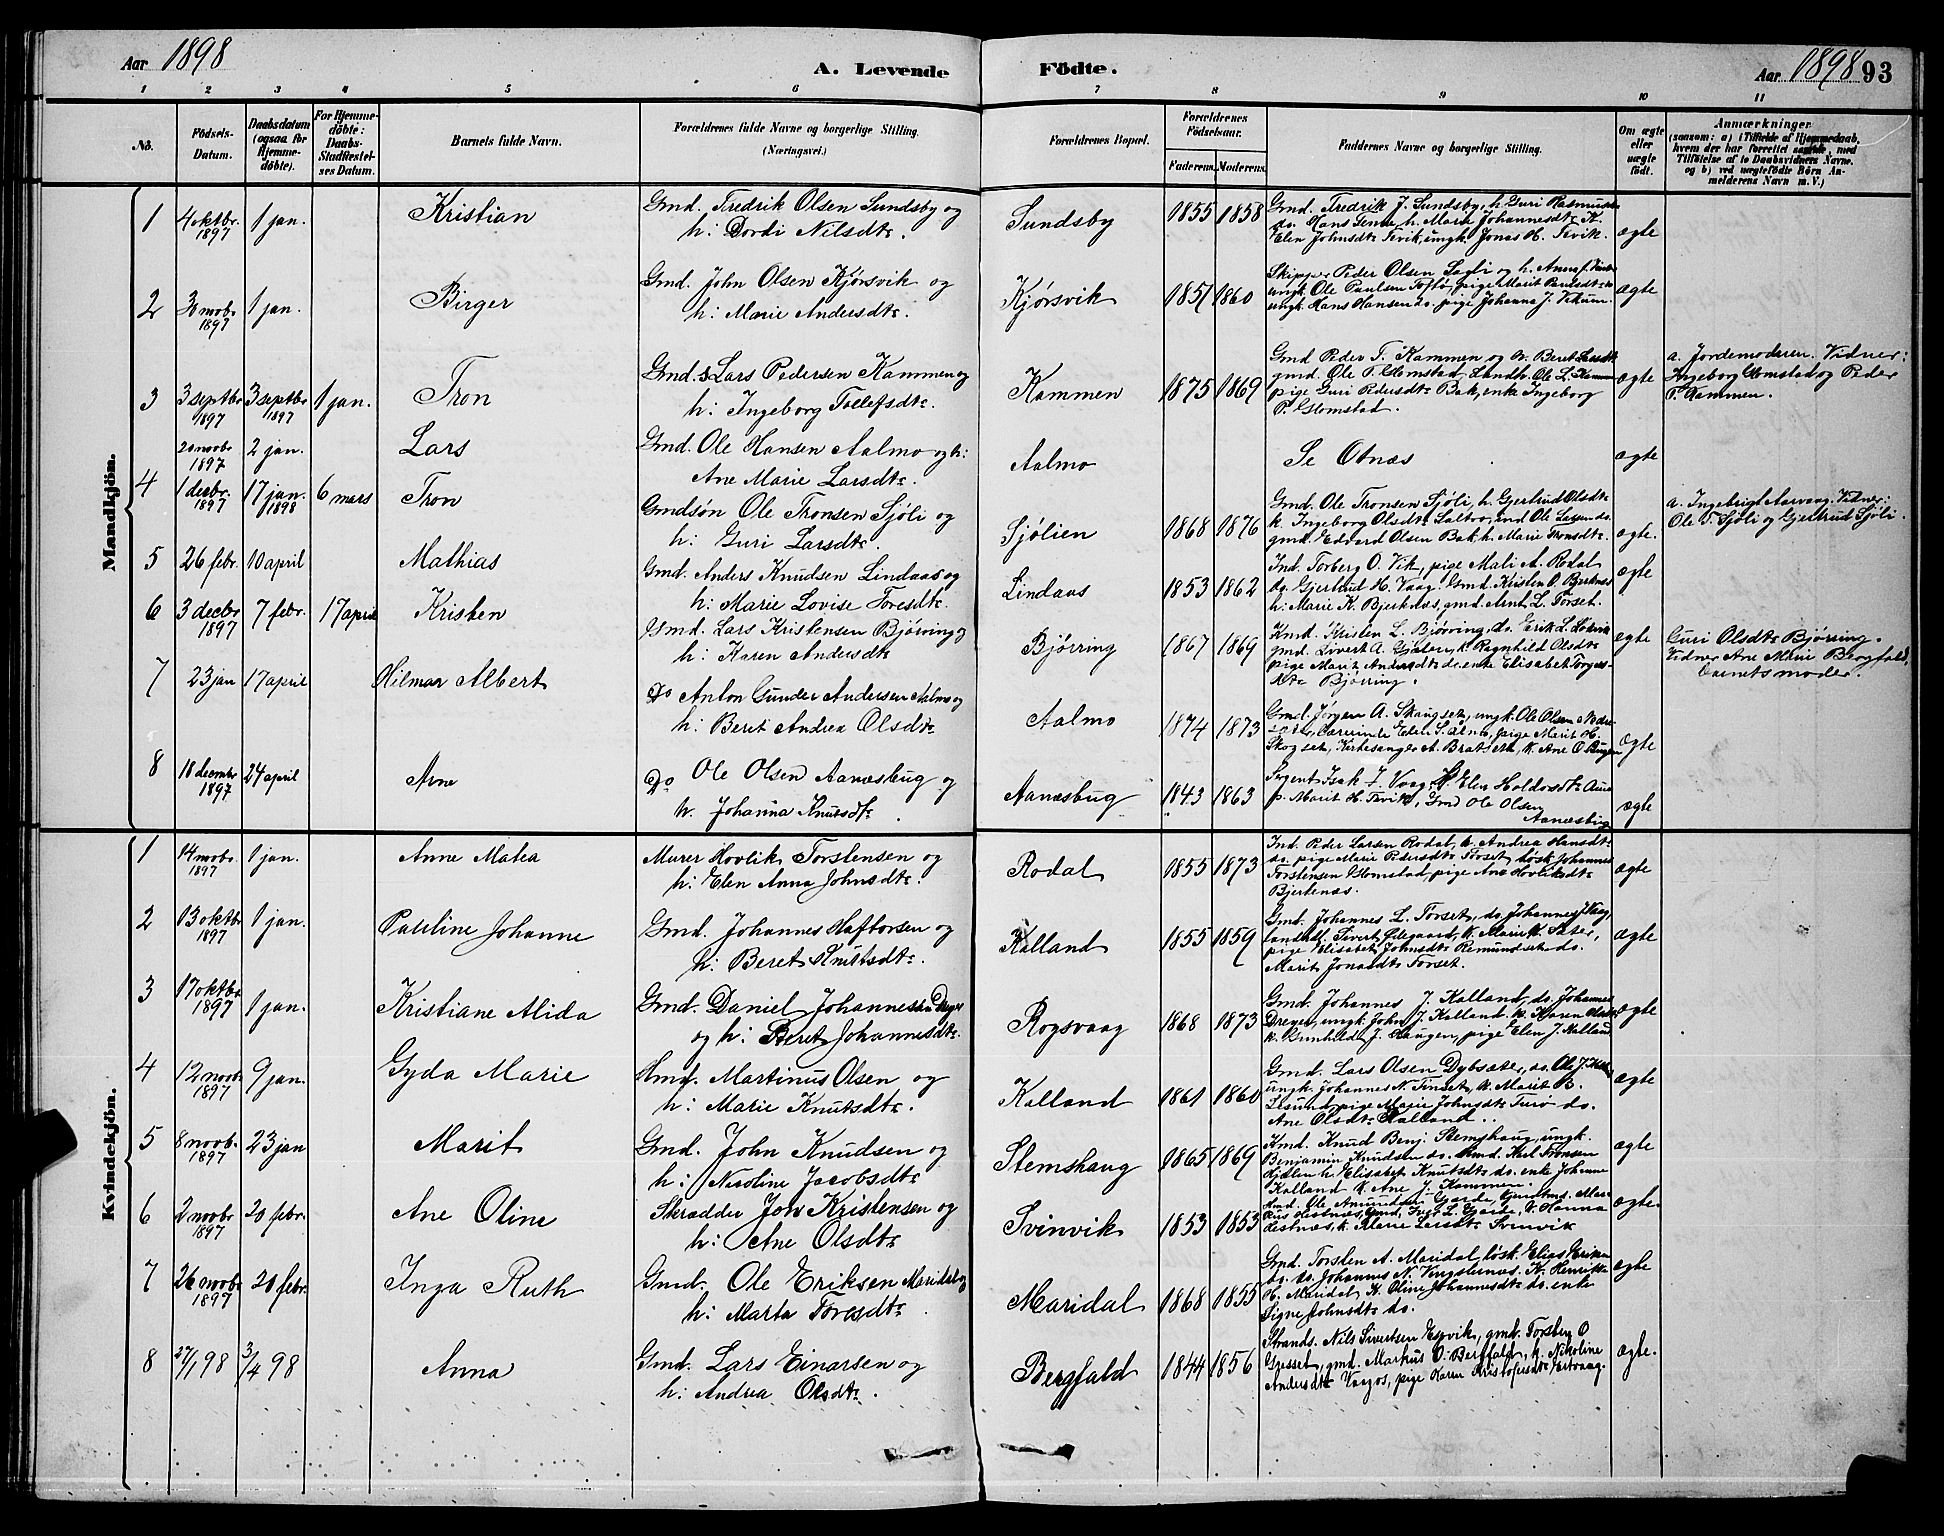 Aar 1898 A. Levende Födte. Aar 1898 93
1 2 3 4 5 6 7 8 9 10 11
No. Födsels-Datum. Daabsdatum (ogsaa for Hjemmedöbte). For Hjemmedöbte: Daabs-Stadfæstelses Datum. Barnets fulde Navn. Forældrenes fulde Navne og borgerlige Stilling. (Næringsvei.) Forældrenes Bopæl. Forældrenes Födselsaar. Faderens. Moderens. Faddernes Navne og borgerlige Stilling. Om ægte eller uægte födt. Anmærkninger (saasom: a) i Tilfælde af Hjemmedaab, hvem der har forrettet samme, med Tilföielse af to Daabsvidners Navne, og b) ved uægtefödte Börn Anmelderens Navn m. V.)
Mandkjön.
1 4 oktbr. 1897 1 jan. Kristian Gmd. Fredrik Olsen Sundsby og
h: Dordi Nilsdtr. Sundsby 1855 1858 Gmd. Fredrik J. Sundsby, h. Guri
do. Hans h. Marie Johannesdtr. K.
Elen Johnsdtr. Tevik, ungk. Jonas H. Tevik. ægte
2 1897 1 jan. Birger Gmd. John Olsen Kjørsvik og
h: Marie Andersdtr. Kjørsvik 1857 1860 Skipper Peder Olsen og h. Anne
ungk. Ole Paulsen pige Marit
ungk. Hans Hansen do. pige Johanna J. ægte
3 3 septbr 1897 3 septbr 1897 1 jan. Tron Gmd.s Lars Pedersen Kammen og
h: Ingeborg Tollefsdtr. Kammen 1875 1869 Gmd Peder T. Kammen og h. Beret Larsdtr.
gmd. Ole P. Glomstad, Landh. Ole L. Kammen
pige Guri Pedersdtr. Bak, enke Ingeborg
P. Glomstad. ægte a. Jordemoderen. Vidner:
Ingeborg Glomstad og Peder
P. Kammen.
20 novbr 1897 2 jan. Lars Gmd. Ole Hansen Aalmo og h:
Ane Marie Larsdtr. Aalmo Se Otnæs ægte
4 1 decbr. 1897 17 jan. 1898 6 mars Tron Gmdsøn Ole Tronsen Sjöli og
h: Guri Larsdtr. Sjølien 1868 1876 Gmd. Ole Tronsen Sjöli, h. Gjertrud Olsdtr.
k. Ingeborg Olsdtr. Ole Larsen do.
gmd. Edvard Olsen Bak, h. Marie Tronsdtr. ægte. a. Ingebrigt Aarvaag. Vidner:
Ole T. Sjöli og Gjertrud Sjöli.
5 26 febr. 10 april Mathias Gmd. Anders Knudsen Lindaas og
h: Marie Lovise Toresdtr. Lindaas 1853 1862 Ind. Torberg O. Vik, pige Mali A. Rodal
do. Gjertrud H. Vaag. Gmd. Kristen O. Bjerknæs
h: Marie K. Bjerknæs, gmd. Arnt L. Torset. ægte
6 3 decbr 1897 7 febr. 17 april Kristen Gmd. Lars Kristensen Bjørring og
h: Karen Andersdtr. Bjørring 1867 1869 Gmd. Kristen L. Bjørring, do. Erik L.
gmd. Sivert A. Gjølen, k. Ragnhild Olsdtr.
pige Marit Andersdtr. do. enke Elisabet
Bjørring. ægte Guri Olsdtr. Bjørring.
Vidner Ane Marie Bergfald,
barnets moder.
7 23 jan 17 april Hilmar Albert Do Anton Gunder Andersen Aalmo og
h: Beret Andrea Olsdtr. Aalmo 1874 1873 Gmd. Jørgen A. Skaugset, ungk. Ole Olsen
Elen S. Almo, pige Marit H.
Skogset, Kirkesanger A. Bratset, k. Ane O. ægte
8 18 decembr 1897 24 april Arne Do Ole Olsen Aanæsbug og
h. Johanna Knutsdtr. Aanæsbug 1843 1863 Sergent Isak J. Vaag, Elen
p. Marit H. Tevik, Gmd Ole Olsen
Aanæsbug ægte
Kvindekjön.
1 14 novbr. 1897 1 jan. Anne Matea Murer Hovlik Torstensen og
h: Elen Anna Johnsdtr. Rodal 1855 1873 Ind. Peder Larsen Rodal, h. Andrea Hansdtr.
do. pige Marie Pedersdtr. Torset, løsk. Johannes
Torstensen Glomstad, pige Ane Hovliksdtr.
Bjerknæs. ægte
2 13 oktbr 1897 1 jan. Pauline Johanne Gmd. Johannes Haftorsen og
h: Beret Knutsdtr. Kalland 1855 1859 Gmd. Johannes L. Torset, do. Johannes J. Vaag,
Sivert Ødegaard, k. Marie K. Sæter,
pige Elisabet Johnsdtr. Remundset do.
Marit Jonasdtr. Torset. ægte
3 17 oktbr. 1897 1 jan. Kristiane Alida Gmd. Daniel Johannesen
og h: Beret Johannesdtr. Rogsvaag 1868 1873 Gmd. Johannes J. Kalland, do. Johannes
Dreger, ungk. John J. Kalland, k. Karen
k. Gunhild J. Haugen, pige Elen J. Kalland ægte
4 12 novbr. 1897 9 jan. Gyda Marie Hmd. Martinus Olsen og
h: Marie Knutsdtr. Kalland 1861 1860 Gmd. Lars Olsen Dybsæter, do. Ole J.
ungk. Johannes N. Tinset, k. Marit B.
pige Marie Johnsdtr. do.
Ane Olsdtr. Kalland. ægte
5 8 novbr. 1897 23 jan Marit Gmd. John Knudsen og
h: Nicoline Jacobsdtr. Stemshaug 1865 1869 Kmd. Knud Benj. Stemshaug, ungk.
Benjamin Knudsen do. Gmd. Tronsen
Hjælen, h. Elisabet Knutsdtr. do. enke Johanne
Kalland, k. Ane J. Kammen. ægte
6 2 novbr 1897 20 febr. Ane Oline Skrædder Jon Kristensen og
h: Ane Olsdtr. Svinvik 1853 1853 Gmd. Ole Gjerde,
L. Gjerde, k. Hanna
k. Marie Larsdtr. Svinvik ægte.
7 26 novbr 1897 20 febr. Inga Ruth Gmd. Ole Eriksen Maridal og
h: Marta Toresdtr. Maridal 1868 1855 Gmd. Torsten A. Maridal, løsk. Elias
do. do. Johannes N. K.
H. Maridal, K. Oline Johannesdtr. do. enke
Signe Johnsdtr. do. ægte
8 27/1 98 3/4 98 Anna Gmd. Lars Einarsen og
h: Andrea Olsdtr. Bergfald 1844 1856 Strands. Nils Sivertsen Espvik, gmd. Torsten O
gmd. Markus O. Bergfald, k. Nikoline
Andersdtr. pige Karen Kristofersdtr. ægte.